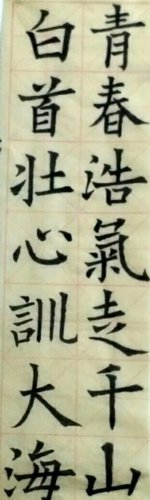 青春浩氣走千山
白首壯心訓大海